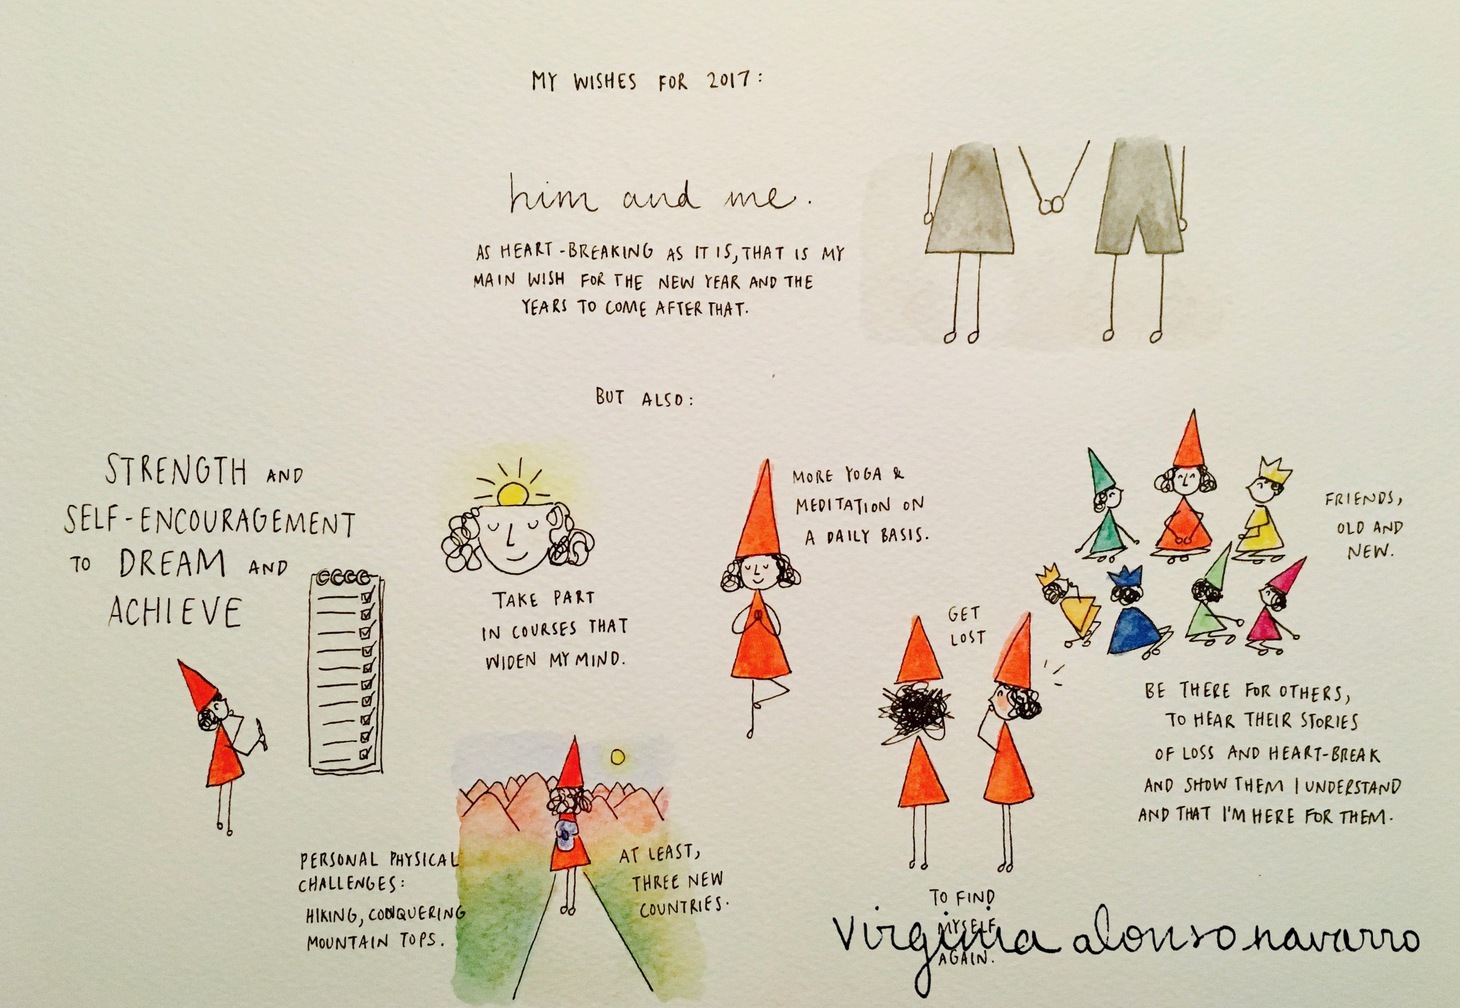 MY WISHES FOR 2017:
him and me.
AS HEART-BREAKING AS IT IS, THAT IS MY
MAIN WISH FOR THE NEW YEAR AND THE
YEARS TO COME AFTER THAT.
BUT ALSO:
STRENGTH AND
SELF-ENCOURAGEMENT
TO DREAM AND
ACHIEVE
TAKE PART
IN COURSES THAT
WIDEN MY MIND.
MORE YOGA &
MEDITATION ON
A DAILY BASIS.
FRIENDS,
OLD AND
NEW.
GET
LOST
TO FIND
MYSELF
AGAIN.
BE THERE FOR OTHERS,
TO HEAR THEIR STORIES
OF LOSS AND HEART-BREAK
AND SHOW THEM I UNDERSTAND
AND THAT I'M HERE FOR THEM.
PERSONAL PHYSICAL
CHALLENGES:
HIKING, CONQUERING
MOUNTAIN TOPS.
AT LEAST,
THREE NEW
COUNTRIES.
virginia alonso navarro